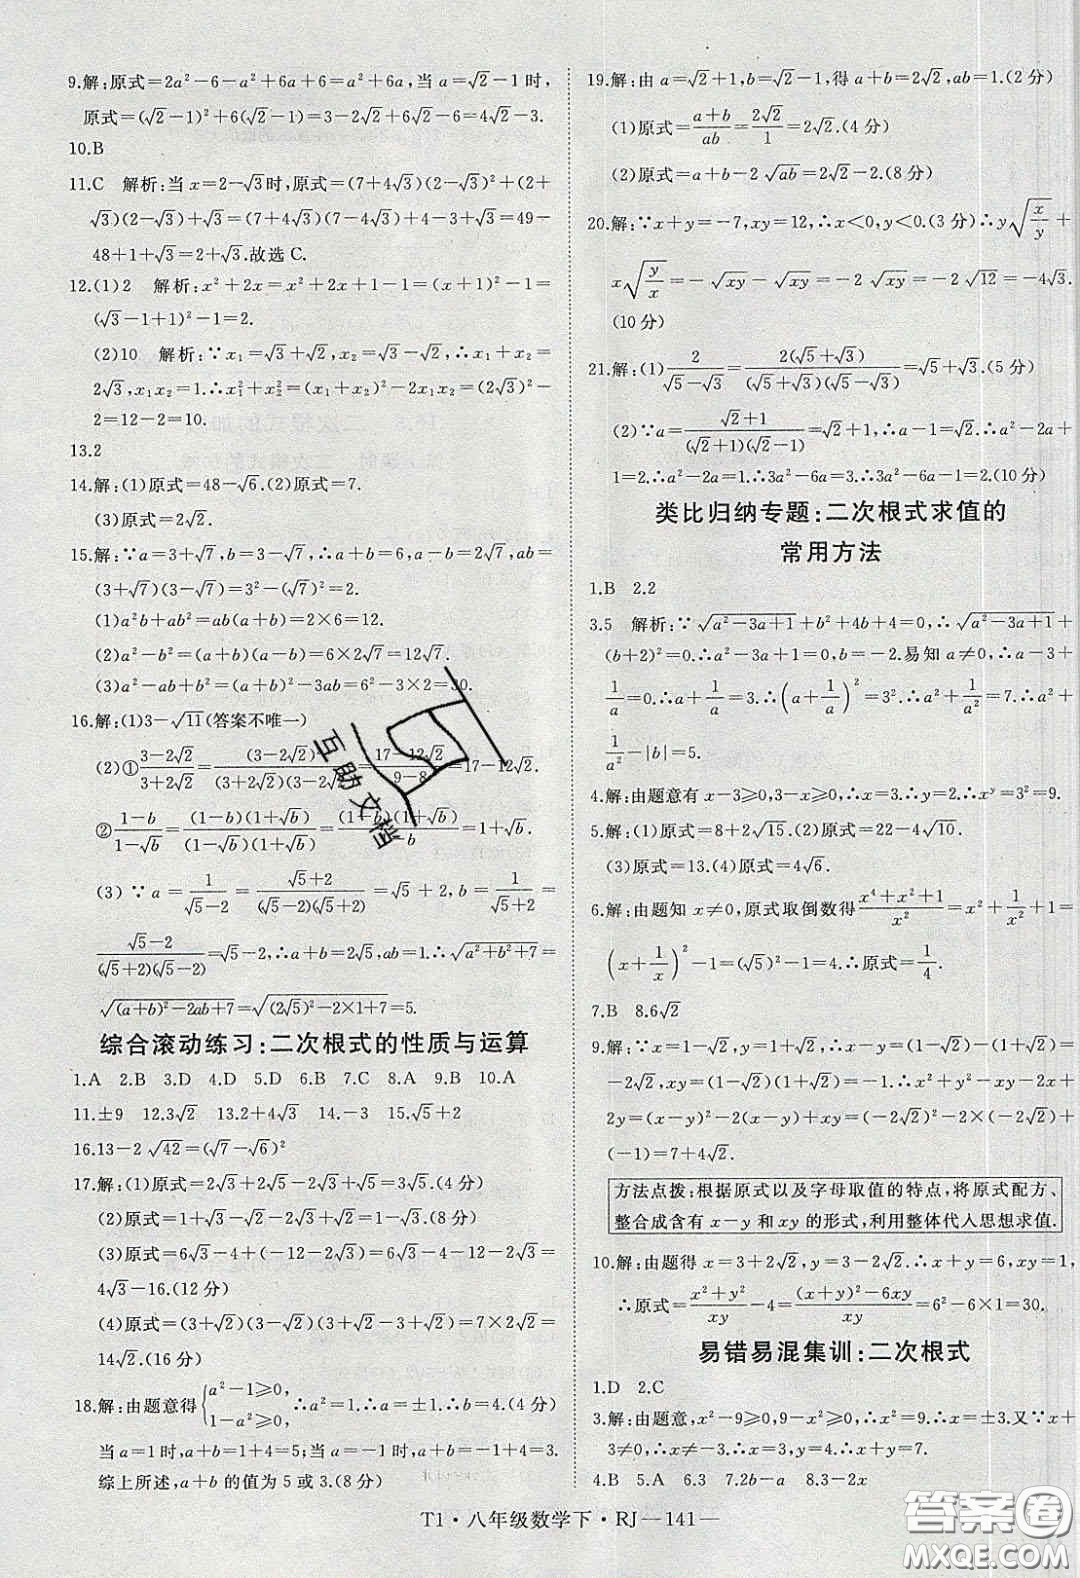 9.解:原式=2a²-6-a²+6a+6=a²+6a,当a=√2-1时,
原式=(√2-1)²+6(√2-1)=3-2√2+6√2-6=4√2-3.
10.B
11.C 解析:当x=2-√3时,原式=(7+4√3)(2-√3)²+(2+
√3)(2-√3)+√3=(7+4√3)(7-4√3)+4-3+√3=49-
48+1+√3=2+√3.故选C.
12.(1)2 解析:x²+2x=x²+2x+1-1=(x+1)²-1=
(√3-1+1)²-1=2.
(2)10 解析:∵x₁=√3+√2,x₂=√3-√2,∴x₁+x₂=
2√3,x₁x₂=1.∴x₁²+x₂²=(x₁+x₂)²-2x₁x₂=(2√3)²-
2=12-2=10.
13.2
14.解:(1)原式=48-√6.(2)原式=7.
(3)原式=2√2.
15.解:∵a=3+√7,b=3-√7,∴a+b=6,a-b=2√7,ab=
(3+√7)(3-√7)=3²-(√7)²=2.
(1)a²b+ab²=ab(a+b)=2×6=12.
(2)a²-b²=(a-b)(a+b)=6×2√7=12√7.
(3)a²-ab+b²=(a+b)²-3ab=6²-3×2=30.
16.解:(1)3-√11(答案不唯一)
(2)①(3-2√2)/(3+2√2)=(3-2√2)²/((3+2√2)(3-2√2))=(17-12√2)/(9-8)=17-12√2.
②(1-b)/(1-√b)=(1-b)(1+√b)/((1-√b)(1+√b))=(1-b)(1+√b)/(1-b)=1+√b.
(3)∵a=1/(√5-2)=(√5+2)/((√5-2)(√5+2))=√5+2,b=1/(√5+2)=
(√5-2)/((√5+2)(√5-2))=√5-2.∴a+b=2√5,ab=1.∴√(a²+b²+7)=
√((a+b)²-2ab+7)=√((2√5)²-2×1+7)=5.
综合滚动练习:二次根式的性质与运算
1.A 2.B 3.D 4.D 5.D 6.B 7.C 8.A 9.B 10.A
11.±9 12.3√2 13.2+4√3 14.-3 15.√5+2
16.13-2√42=(√7-√6)²
17.解:(1)原式=2√3+2√5-2√3-√5=√5.(4分)
(2)原式=1+6√3-6√3-2√2=1-2√2.(8分)
(3)原式=6√3-4+(-12-2√3)=6√3-4-12-2√3=
4√3-16.(12分)
(4)原式=(3+√2)(3-√2)(3+√2-3+√2)=7×2√2=
14√2.(16分)
18.解:由题意得{a²-1≥0,1-a²≥0,∴a²=1.∴a=±1.∴b=4.(4分)
当a=1时,a+b=1+4=5;当a=-1时,a+b=-1+4=3.
综上所述,a+b的值为5或3.(8分)
19.解:由a=√2+1,b=√2-1,得a+b=2√2,ab=1.(2分)
(1)原式=(a+b)/ab=2√2/1=2√2.(4分)
(2)原式=a+b-2√ab=2√2-2.(8分)
20.解:∵x+y=-7,xy=12,∴x<0,y<0.(3分)∴y√(x/y)+
x√(y/x)=-√xy-√xy=-2√xy=-2√12=-4√3.
(10分)
21.解:(1)2/(√5-√3)=2(√5+√3)/((√5+√3)(√5-√3))=√5+√3.(5分)
(2)∵a=(√2+1)/((√2+1)(√2-1))=√2+1,∴a-1=√2.∴a²-2a+
1=2.∴a²-2a=1.∴3a²-6a=3.∴3a²-6a-1=2.(10分)
类比归纳专题:二次根式求值的
常用方法
1.B 2.2
3.5 解析:∵√(a²-3a+1)+b²+4b+4=0,∴√(a²-3a+1)+
(b+2)²=0.∴a²-3a+1=0,b=-2.易知a≠0,∴a-3+
1/a=0.∴a+1/a=3.∴(a+1/a)²=3².∴a²+1/a²=7.∴a²+
1/a²-|b|=5.
4.解:由题意有x-3≥0,3-x≥0,∴x=3.∴y=2.∴xʸ=3²=9.
5.解:(1)原式=8+2√15.(2)原式=22-4√10.
(3)原式=13.(4)原式=4√6.
6.解:由题知x≠0,原式取倒数得(x⁴+x²+1)/x²=x²+1/x²+1=
(x+1/x)²-1=(√5)²-1=4.∴原式=1/4.
7.B 8.6√2
9.解:∵x=1-√2,y=1+√2,∴x-y=(1-√2)-(1+√2)=
-2√2,xy=(1-√2)(1+√2)=-1.∴x²+y²-xy-2x+
2y=(x-y)²-2(x-y)+xy=(-2√2)²-2×(-2√2)+
(-1)=7+4√2.
方法点拨:根据原式以及字母取值的特点,将原式配方、
整合成含有x-y和xy的形式,利用整体代入思想求值.
10.解:由题得x=3+2√2,y=3-2√2.∴x+y=6,xy=1,
∴原式=(x²+y²)/xy-4=((x+y)²-6xy)/xy=6²-6×1=30.
易错易混集训:二次根式
1.D 2.C
3.解:由题意,x²-9≥0,9-x²≥0,∴x²=9.∴x=±3.又∵x+
3≠0,∴x≠-3.∴x=3,∴y=4.∴x+y=7.
4.B 5.A 6.3 7.2b-a 8.3-2x
T1·八年级数学下·RJ—141—
互助文档
答案圈
MXQE.COM